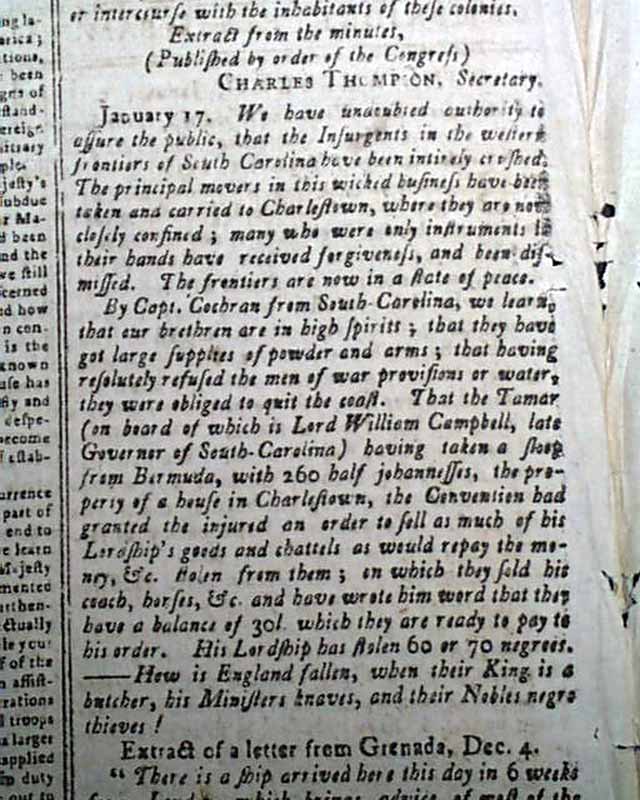 or intercourse with the inhabitants of these colonies.
Extract from the minutes,
(Published by order of the Congress)
CHARLES THOMPSON, Secretary.
January 17. We have undoubted authority to
assure the public, that the Insurgents in the western
frontiers of South Carolina have been intirely crushed.
The principal movers in this wicked business have been
taken and carried to Charlestown, where they are now
closely confined ; many who were only instruments in
their hands have received forgiveness, and been dis-
missed. The frontiers are now in a state of peace.
By Capt. Cochran from South-Carolina, we learn,
that our brethren are in high spirits ; that they have
got large supplies of powder and arms ; that having
resolutely refused the men of war provisions or water,
they were obliged to quit the coast. That the Tamar
(on board of which is Lord William Campbell, late
Governor of South-Carolina) having taken a sloop
from Bermuda, with 260 half johannesses, the pro-
perty of a house in Charlestown, the Convention had
granted the injured an order to sell as much of his
Lordship's goods and chattels as would repay the mo-
ney, &c. stolen from them ; on which they sold his
coach, horses, &c. and have wrote him word that they
have a balance of 30l. which they are ready to pay to
his order. His Lordship has stolen 60 or 70 negroes.
——How is England fallen, when their King is a
butcher, his Ministers knaves, and their Nobles negro
thieves !
Extract of a letter from Grenada, Dec. 4.
" There is a ship arrived here this day in 6 weeks
from London, which brings advice of most of the